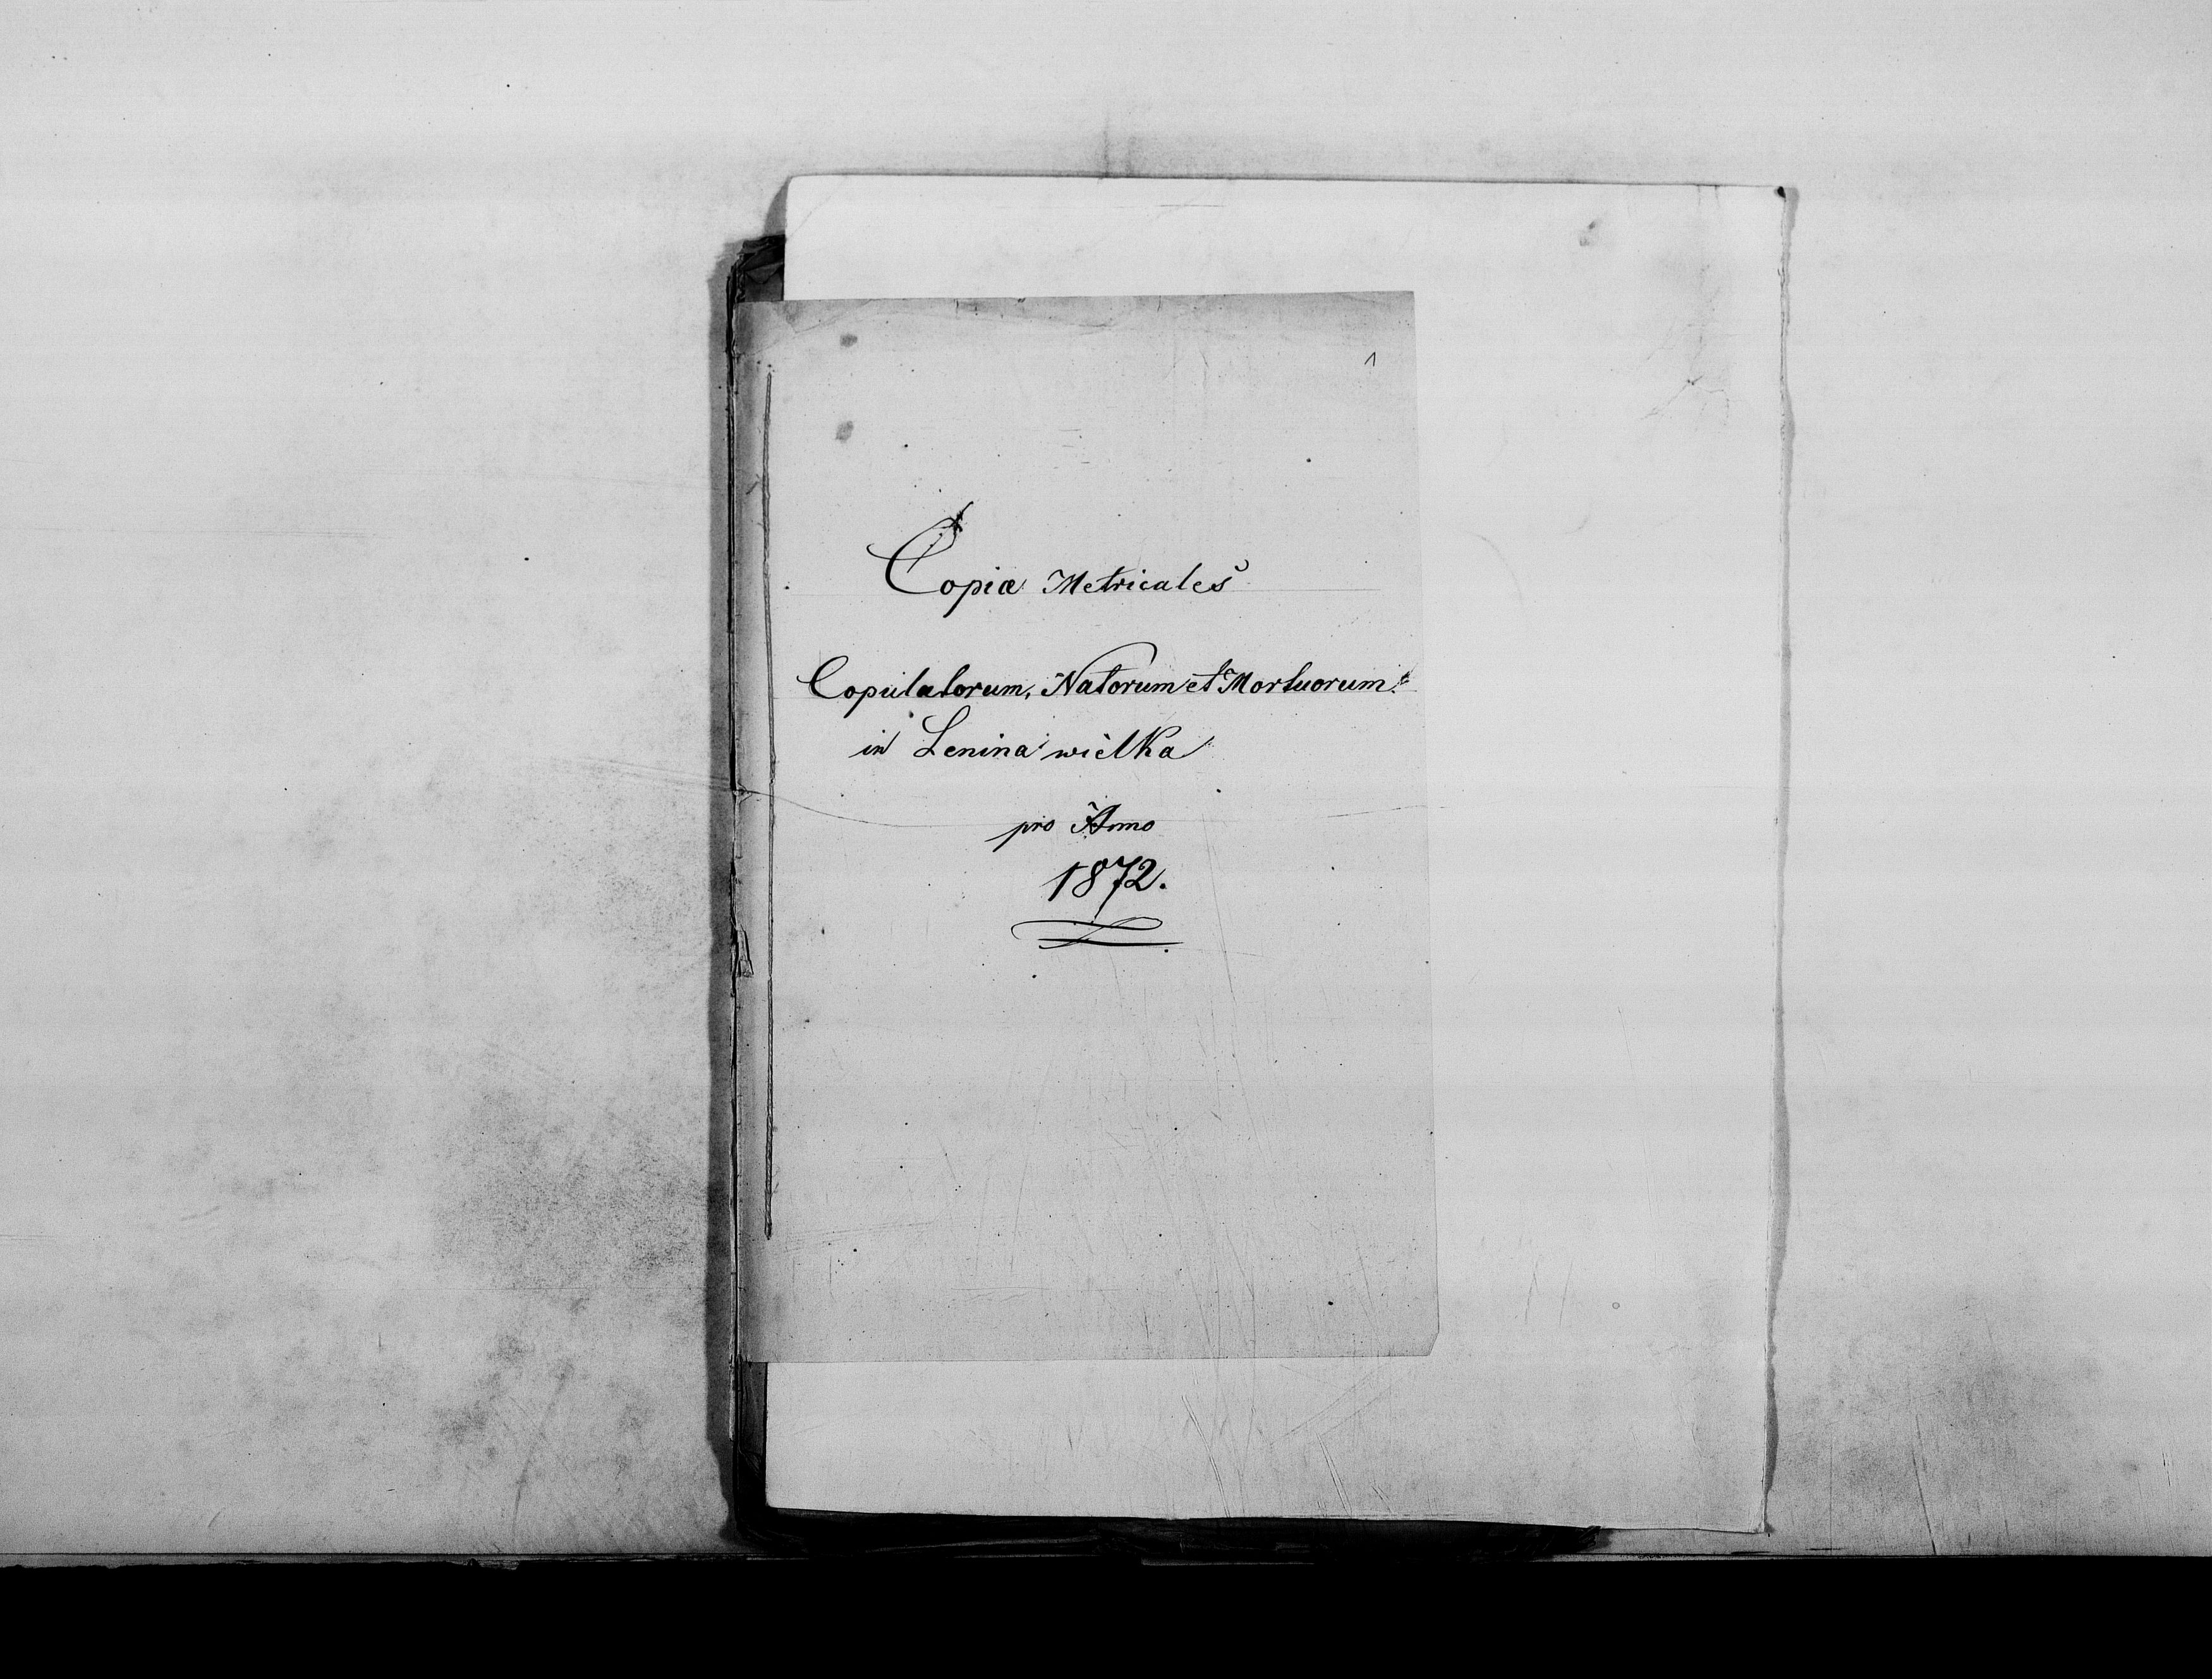 1
Copiæ Metricales
Copulatorum, Natorum et Mortuorum.
in Lenina wielka
pro Anno
1872.